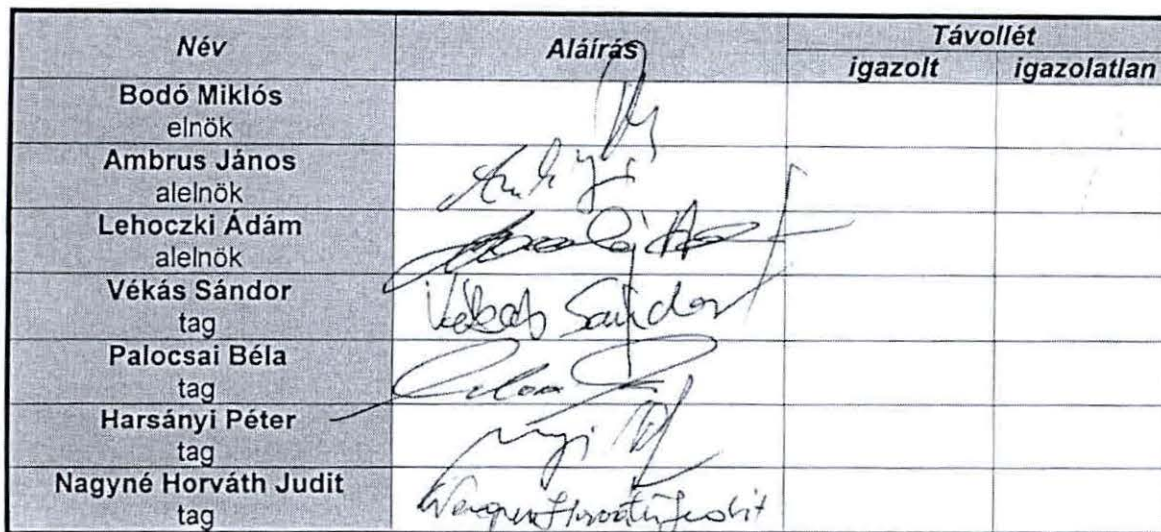 Név Aláírás Távollét
igazolt igazolatlan
Bodó Miklós
elnök
Ambrus János
alelnök
Lehoczki Ádám
alelnök
Vékás Sándor Vékás Sándor
tag
Palocsai Béla
tag
Harsányi Péter
tag
Nagyné Horváth Judit
tag Nagyné Horváth Judit